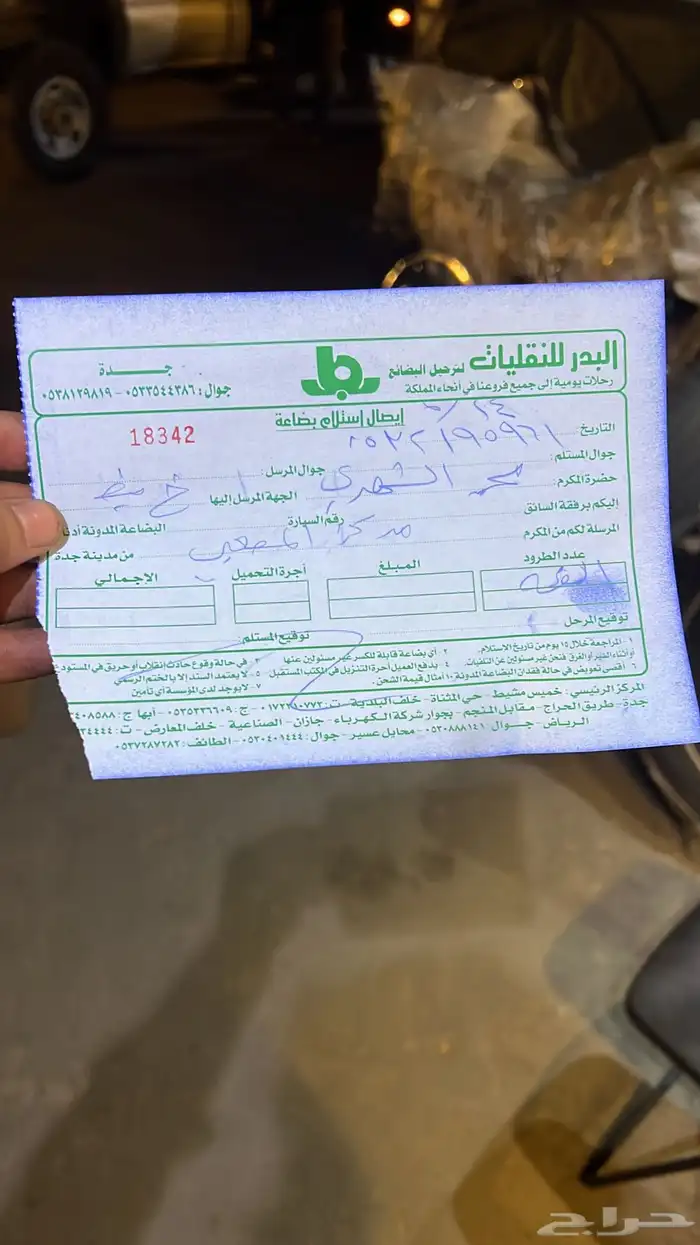 البدر للنقليات لترحيل البضائع
رحلات يومية إلى جميع فروعنا في انحاء المملكة
جـــدة
جوال: ٠٥٣٣٥٤٤٣٨٦ - ٠٥٣٨١٢٩٨١٩
إيصال إستلام بضاعة
18342
التاريخ:
جوال المستلم: ٠٥٣٢١٩٥٩٦١
جوال المرسل:
حضرة المكرم: محمد الشهري
الجهة المرسل إليها خ مشيط
إليكم برفقة السائق
رقم السيارة
البضاعة المدونة أد
المرسلة لكم من المكرم
من مدينة جدة
عدد الطرود
المبلغ
أجرة التحميل
الإجمالي
توقيع المرحل
توقيع المستلم:
١- المراجعة خلال ١٥ يوم من تاريخ الاستلام.
٢- أي بضاعة قابلة للكسر غير مسئولين عنها
في حالة وقوع حادث إنقلاب أو حريق في المستود
فنحن غير مسئولين عن التلفيات.
٤- يدفع العميل أجرة التنزيل في المكتب المستقبل
٥- لا يعتمد السند إلا بالختم الرسمي
٦- أقصى تعويض في حالة فقدان البضاعة المدونة ١٠ أمثال قيمة الشحن.
٧- لا يوجد لدى المؤسسة أي تأمين
المركز الرئيسي: خميس مشيط - حي المثناة - خلف البلدية - ج: ٠٥٣٥٣٣٦٦٠٩ - أبها ج: ٤٠٨٥٨٨
جدة - طريق الحراج - مقابل المنجم - بجوار شركة الكهرباء - جازان - الصناعية - خلف المعارض - ت: ٣٤٤٤٤
الرياض - جـوال: ٠٥٣٠٨٨٨١٤١ - محايل عسير - جوال: ٠٥٣٠٤٠١٤٤٤ - الطائف: ٠٥٣٧٢٨٧٢٨٢
حراج